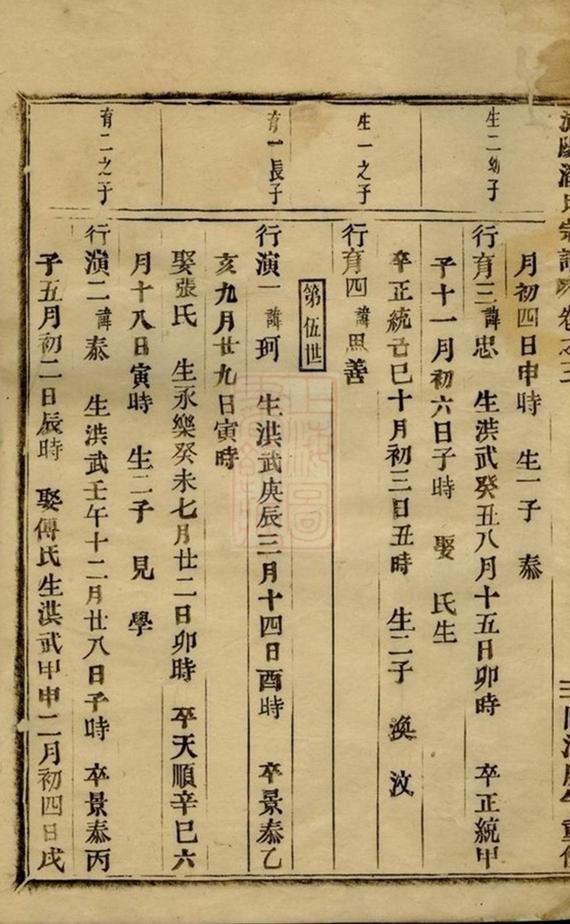 宗譜 卷之三
月初四日申時 生一子 泰
生二幼子
行育三諱忠 生洪武癸丑八月十五日卯時 卒正統甲
子十一月初六日子時 娶 氏生
卒正統己巳十月初三日丑時 生二子 渙 汶
生一之子
行育四諱思善
第伍世
育一長子
行演一諱珂 生洪武庚辰三月十四日酉時 卒景泰乙
亥九月廿九日寅時
娶張氏 生永樂癸未七月廿二日卯時 卒天順辛巳六
月十八日寅時 生二子 見 學
育二之子
行演二諱泰 生洪武壬午十二月廿八日子時 卒景泰丙
子五月初二日辰時 娶傅氏生洪武甲申二月初四日戌